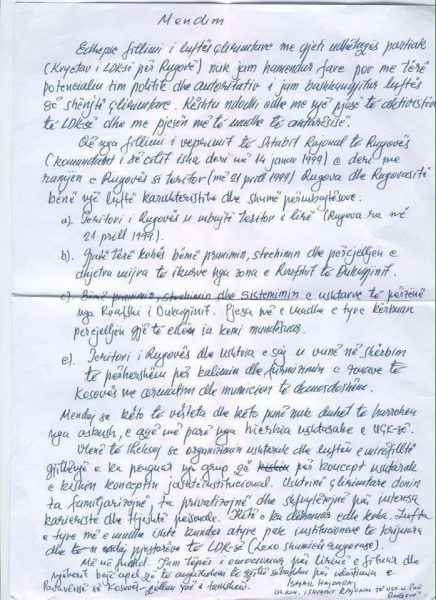 Mendim
Edhepse fillimi i luftës çlirimtare me gjeti udhëheqës partiak
(Kryetar i LDKsë për Rugovë) nuk jam hamendur fare por me tërë
potencialin tim politik dhe autoritativ i jam bashkangjitur luftës
së shenjtë çlirimtare. Kështu ndodhi edhe me një pjesë të aktivistëve
të LDKsë dhe me pjesën më të madhe të anëtarësisë.
Që nga fillimi i veprimit të Shtabit Rajonal të Rugovës
(komandant i së cilit isha deri më 14 janar 1999) e deri me
ramjen e Rugovës si teritor (më 21 prill 1999) Rugova dhe Rugovasit
bënë një luftë karakteristike dhe shumë përmbajtësore.
a). Teritori i Rugovës u mbajt teritor i lirë (Rugova ra më
21 prill 1999).
b). Gjatë tërë kohës bëmë pranimin, strehimin dhe përcjelljen e
dhjetra mijra të ikurve nga zona e Rrafshit të Dukagjinit.
c). Bëmë pranimin, strehimin dhe sistemimin e ushtarve të
nga Rrafshi i Dukagjinit. Pjesa më e madhe e tyre kërkuan
përcjelljen gjë të cilën ia kemi mundësuar.
e). Teritori i Rugovës dhe ushtria e saj u vunë në shërbim
të përhershëm për kalimin dhe furnizimin e zonave të
Kosovës me armatim dhe municion të domosdoshëm.
Mendoj se këto të vërteta dhe këto punë nuk duhet të harrohen
nga askush, e aqë më parë nga hierarkia ushtarake e UÇK-së.
Vlenë të theksoj se organizimin ushtarak dhe luftën e mirëfilltë
gjithënjë e ka penguar një grup që për koncept ushtarak
e kishin konceptin jashtëinstitucional. Ushtrinë çlirimtare donin
ta familjarizojnë, ta privatizojnë dhe shfrytëzojnë për interesa
karrieriste dhe thjeshtë personale. Këtë e ka dëshmuar edhe koha. Lufta
e tyre më e madhe ishte kundër atyne pak institucioneve të krijuara
dhe të pjestarëve të LDK-së (Lexo shumicës rugovase).
Më në fund. Jam tepër i emocionuar për lirinë e fituar dhe
njëherit bëjë apel që të angazhohemi të gjithë sëbashku për ndërtimin e
ardhmërisë së Kosovës